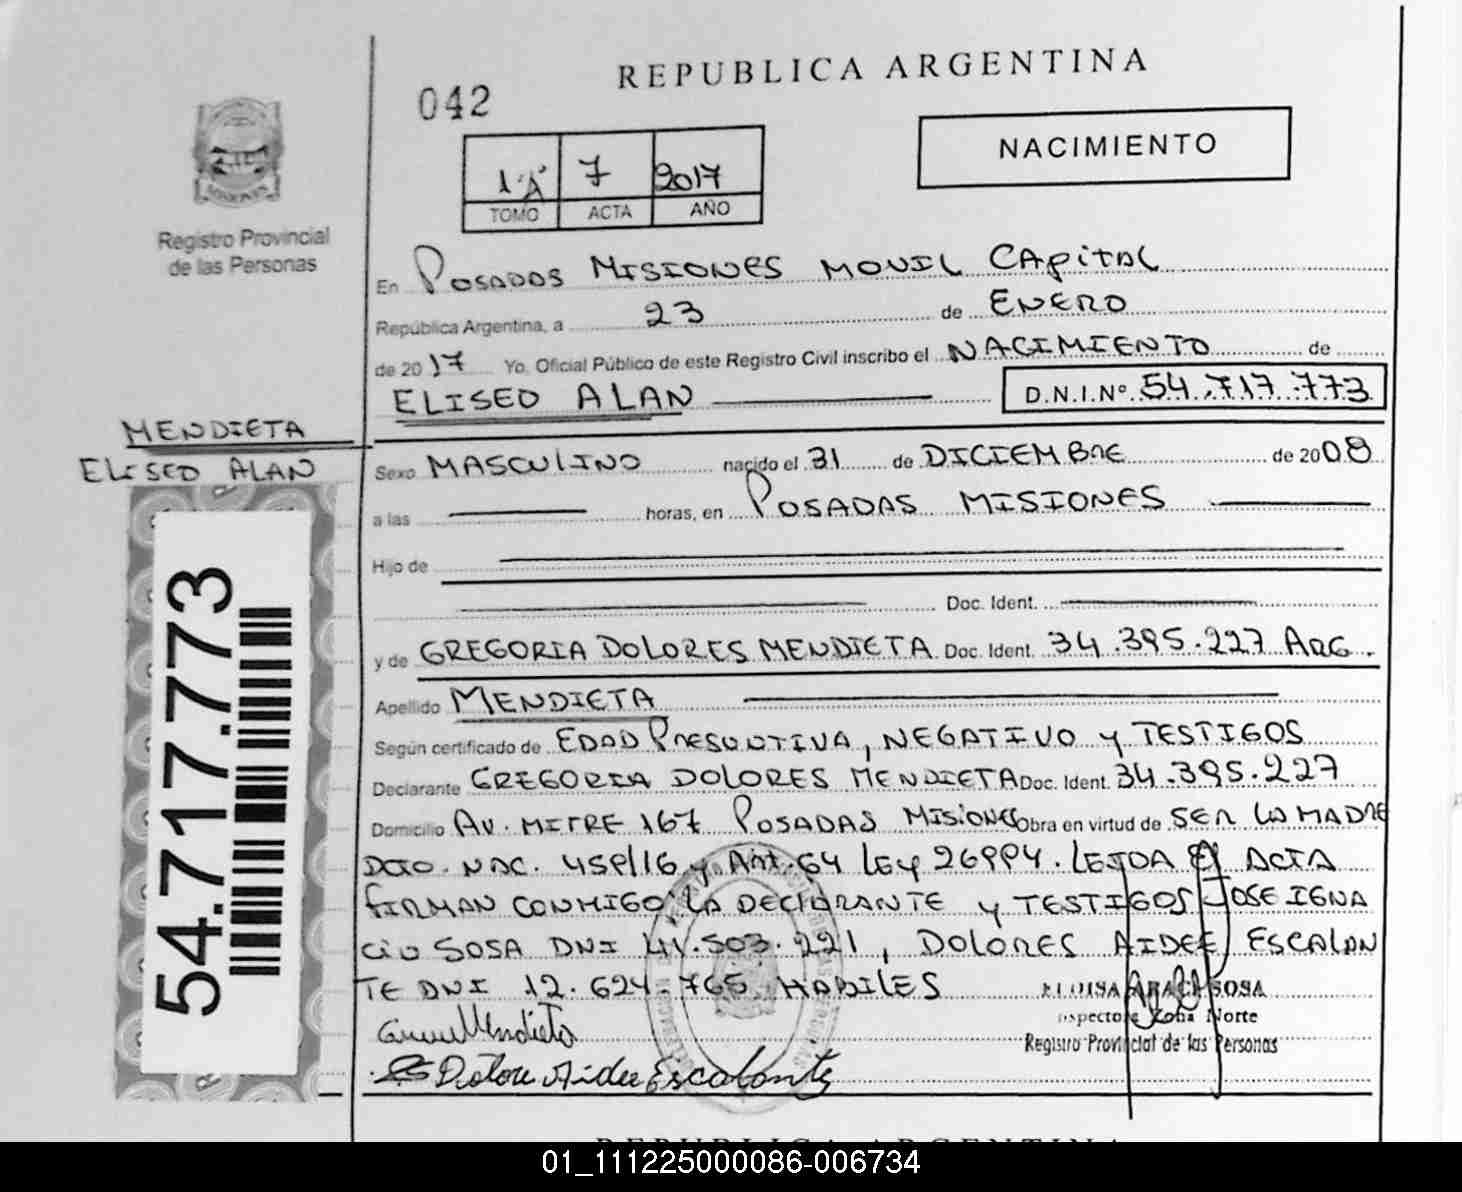 REPUBLICA ARGENTINA
042
NACIMIENTO
1ºA 7 2017
TOMO ACTA AÑO
MISIONES
Registro Provincial
de las Personas
En POSADAS MISIONES MOVIL CAPITAL
República Argentina, a 23 de ENERO
de 2017 Yo, Oficial Público de este Registro Civil inscribo el NACIMIENTO de
ELISEO ALAN D.N.I.Nº 54.717.773
MENDIETA
ELISEO ALAN
54.717.773
Sexo MASCULINO nacido el 31 de DICIEMBRE de 2008
a las horas, en POSADAS MISIONES
Hijo de
Doc. Ident.
y de GREGORIA DOLORES MENDIETA Doc. Ident. 34.395.227 ARG.
Apellido MENDIETA
Según certificado de EDAD PRESUNTIVA, NEGATIVO y TESTIGOS
Declarante GREGORIA DOLORES MENDIETA Doc. Ident. 34.395.227
Domicilio AV. MITRE 167 POSADAS MISIONES Obra en virtud de SER LA MADRE
DCTO. NAC. 459/16 y Art. 64 LEY 26994. LEIDA EL ACTA
FIRMAN CONMIGO LA DECLARANTE y TESTIGOS JOSE IGNA
CIO SOSA DNI 41.503.221, DOLORES AIDEE ESCALAN
TE DNI 12.624.765 HABILES
ELOISA ARACI SOSA
Inspectora Zona Norte
Registro Provincial de las Personas
Mendieta
Dolore Aidee Escalante
REPUBLICA ARGENTINA
01_111225000086-006734